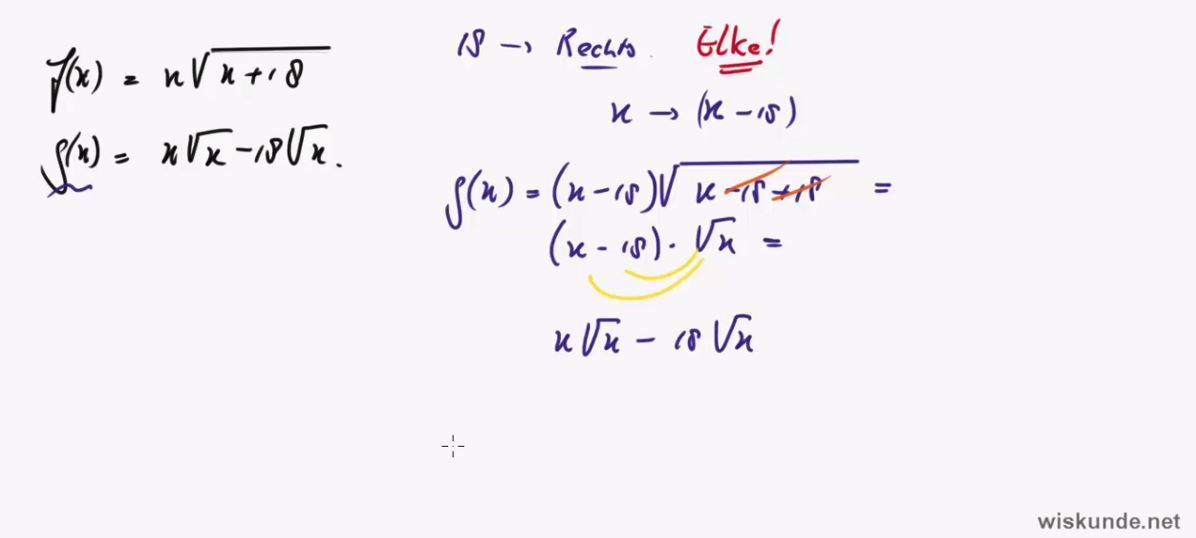 f(x) = x√(x+18)
g(x) = x√x - 18√x.
18 → Rechts. Elke!
x → (x-18)
g(x) = (x-18)√(x-18+18) =
(x-18)·√x =
x√x - 18√x
wiskunde.net